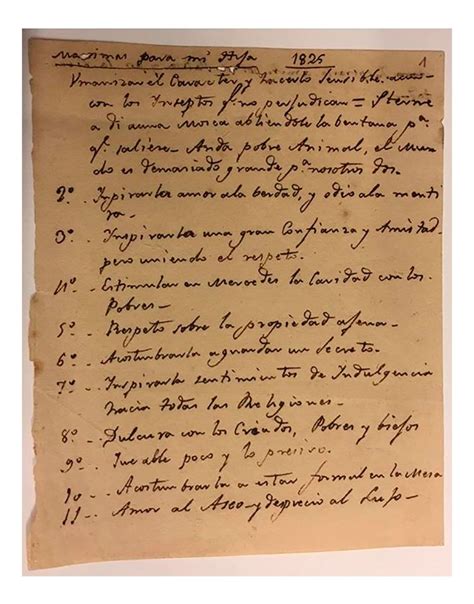 Maximas para mi Hija 1825 1
Umanizar el Caracter y hacerlo sensible aun
con los Inseptos qᵉ no perjudican = Sterne
a di auna Mosca abriendole la bentana pᵃ
qᵉ saliese. Anda pobre Animal, el Mun-
do es demaciado grande pᵃ nosotros dos.
2º .. Inpirarla amor ala berdad, y odio ala menti
ra.
3º .. Inspirarla una gran Confianza y Amistad
pero uniendo el respeto.
4º .. Estimular en Mercedes la Caridad con los
Pobres-
5º .. Respeto sobre la propiedad agena-
6º .. Acostumbrarla a guardar un Secreto.
7º .. Inspirarla sentimientos de Indulgencia
hacia todas las Religiones-
8º .. Dulsura con los Criados, Pobres y biejos
9º .. Que able poco y lo presiso.
10 .. Acostumbrarla a estar formal en la Mesa
11 .. Amor al Aseo y desprecio al Lujo-